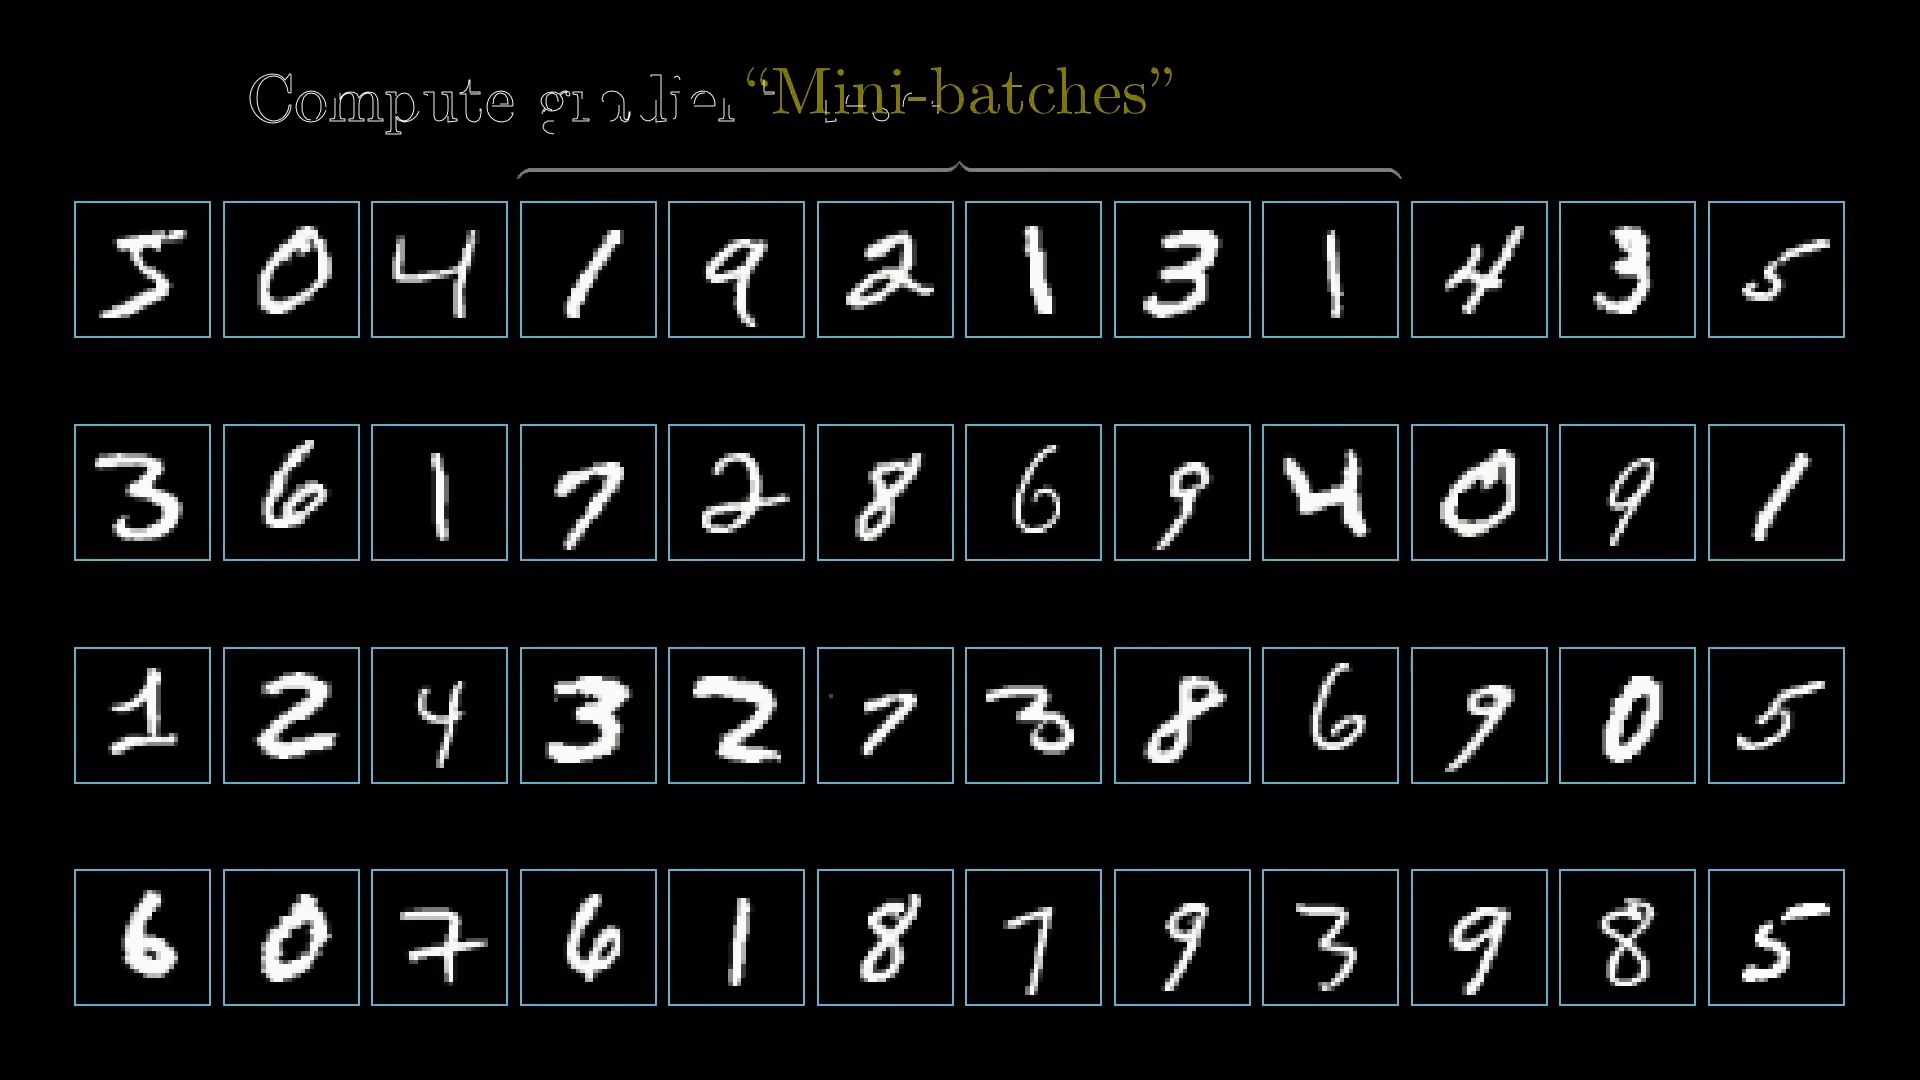 Compute “Mini-batches”
5 0 4 1 9 2 1 3 1 4 3 5
3 6 1 7 2 8 6 9 4 0 9 1
1 2 4 3 2 7 3 8 6 9 0 5
6 0 7 6 1 8 7 9 3 9 8 5